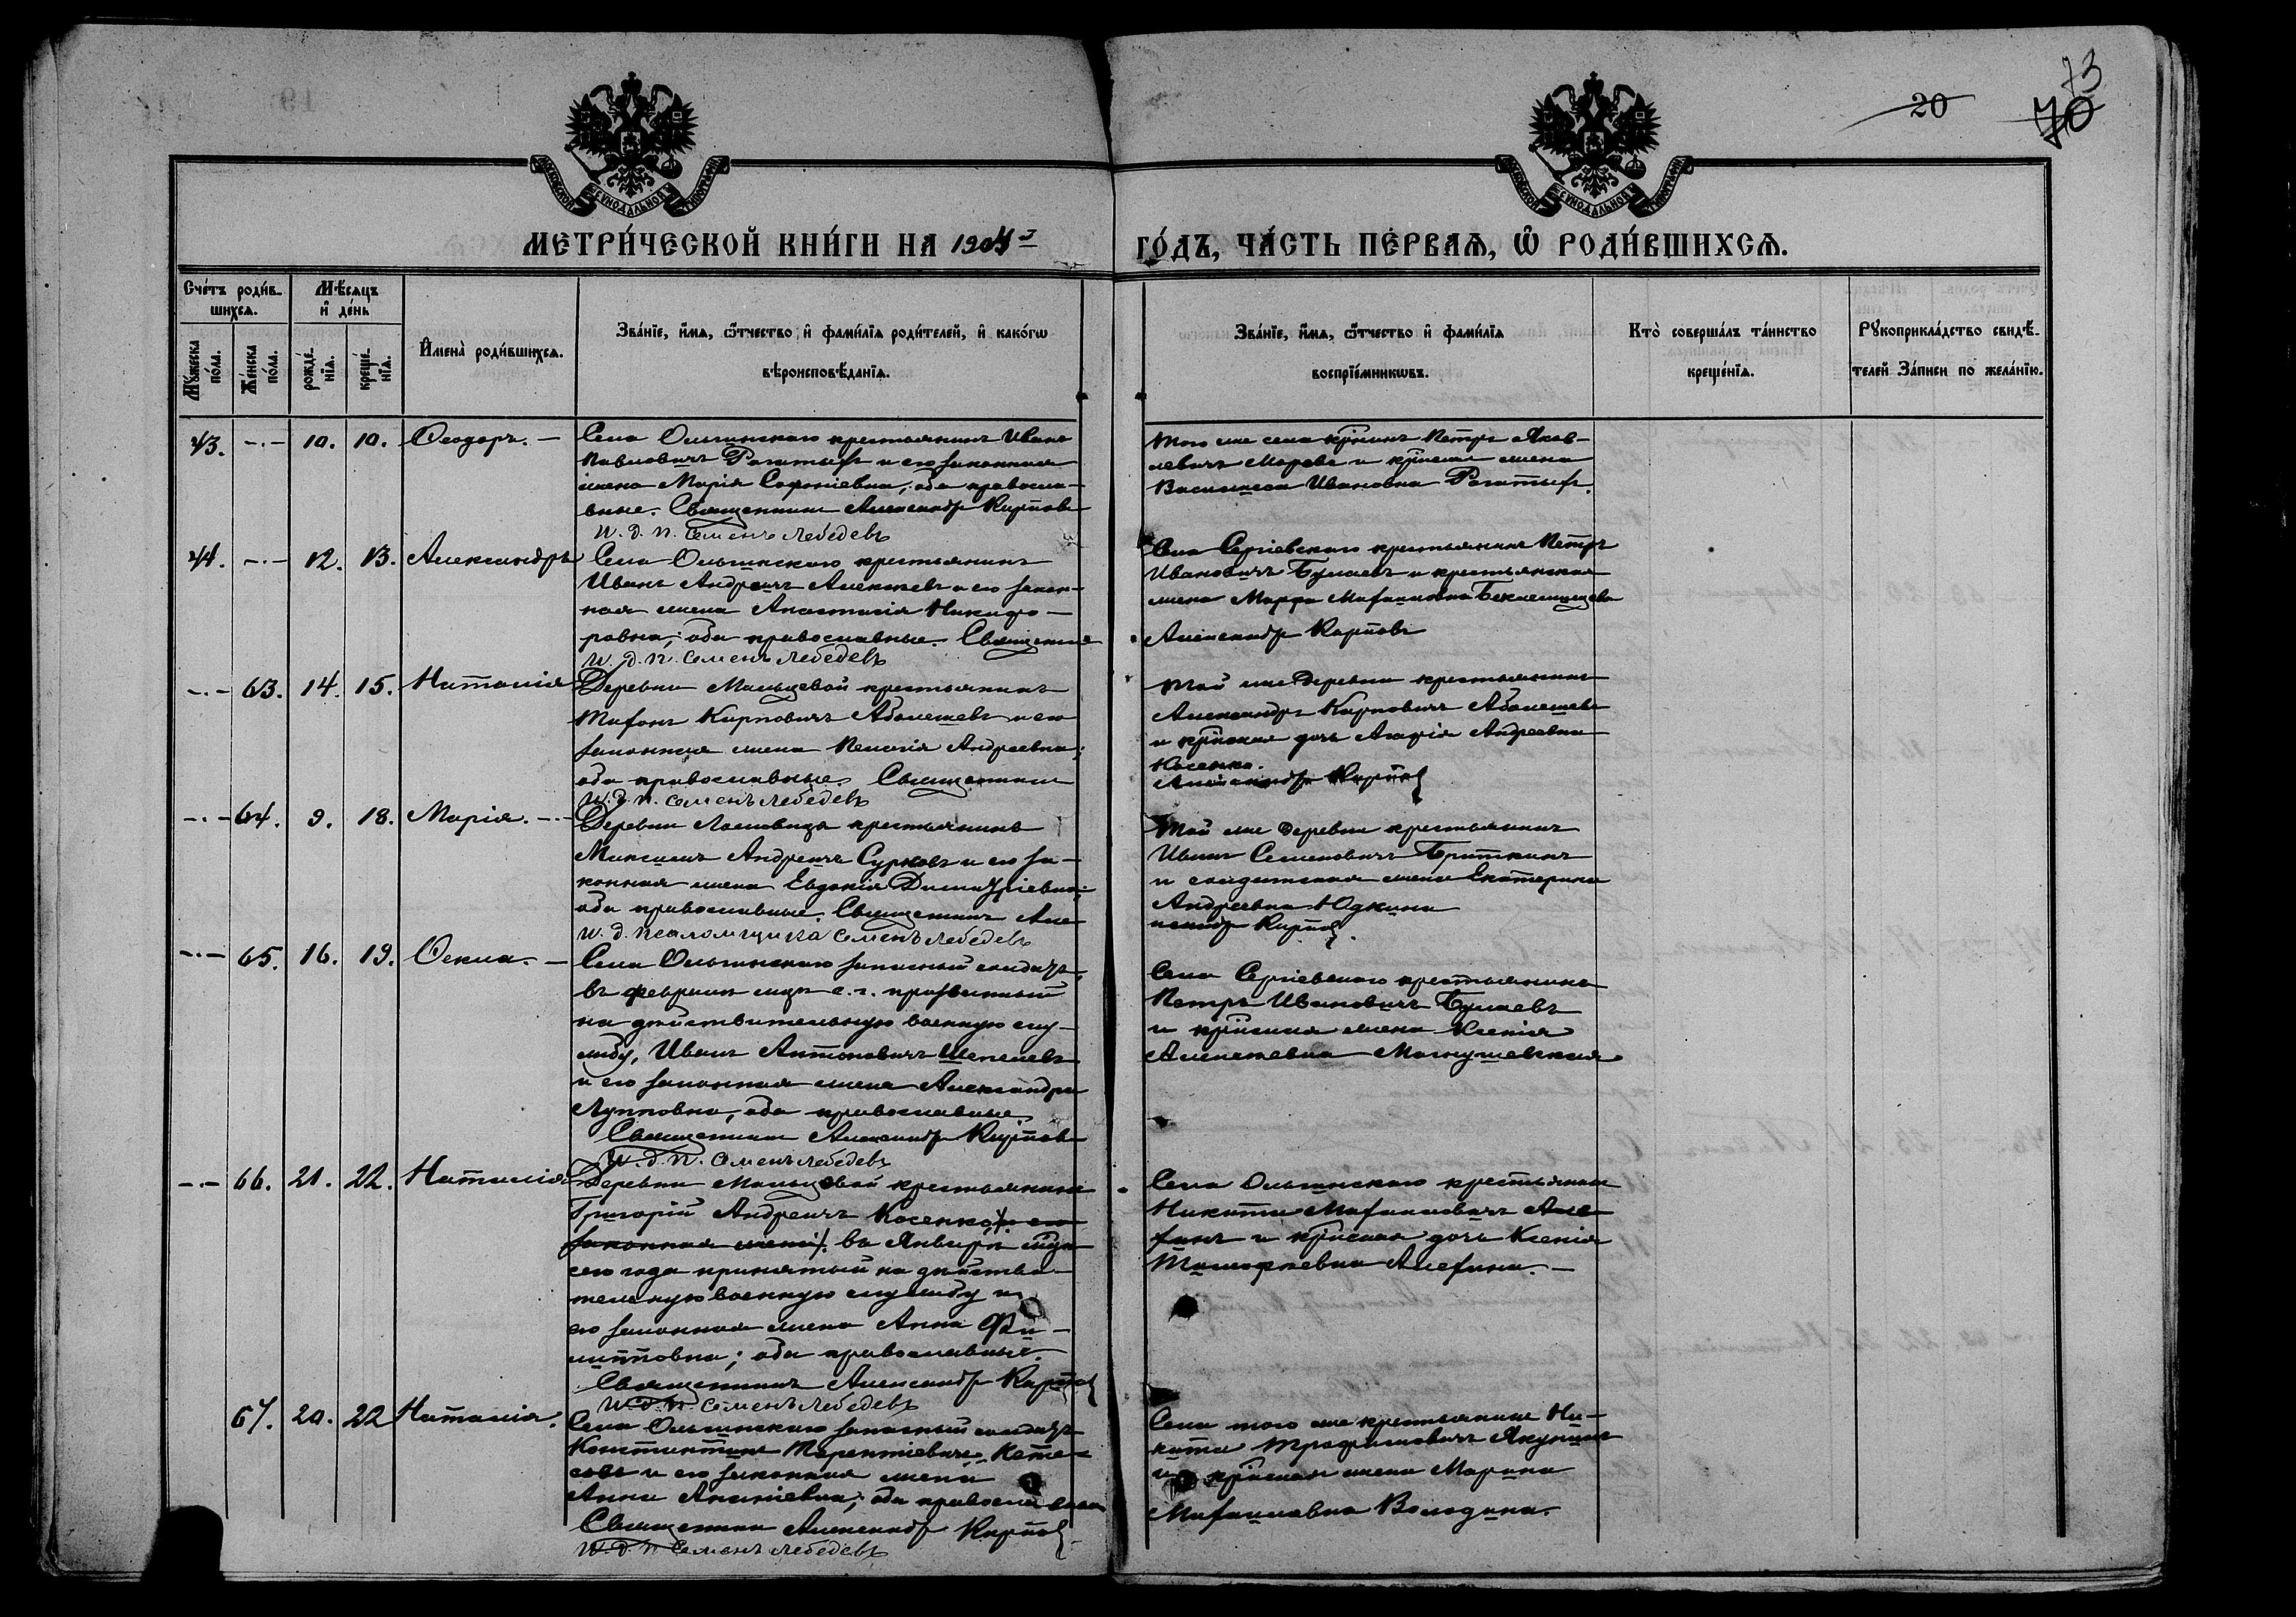 20
70
73
МЕТРИ́ЧЕСКОЙ КНИ́ГИ НА 1904 й
ГО́ДЪ, ЧА́СТЬ ПЕ́РВАѦ, Ѡ РОДИ́ВШИХСѦ.
Сче́тъ роди́в-
шихсѧ.
Мꙋ́жеска по́ла.
Же́нска по́ла.
Мѣ́сѧцъ и де́нь
рожде́-нїѧ.
креще́-нїѧ.
Имена̀ роди́вшихсѧ.
Зва́нїе, и́мѧ, ѻ҆́тчество и фами́лїѧ роди́телей, и како́гѡ
вѣроисповѣ́данїѧ.
Зва́нїе, и́мѧ, ѻ҆́тчество и фами́лїѧ
воспрїе́мникѡвъ.
Кто̀ соверша́лъ та́инство
креще́нїѧ.
Рꙋкоприкла́дство свидѣ́-
телей За́писи по жела́нїю.
43. -·- 10. 10. Ѳеодоръ. —
Села Ольгинскаго крестьянинъ Иванъ
Павловичъ и его законная
жена Марія Софоніевна; оба правосла-
вные. Священникъ Александръ Карповъ
И. д. п. Семенъ Лебедевъ
Того же села кр-нинъ Петръ Яков-
левичъ и жена
Василиса Ивановна
44. -·- 12. 13. Александръ
Села Ольгинскаго крестьянинъ
Иванъ Андреичъ Алексеевъ и его закон-
ная жена Анастасія Никифо-
ровна; оба православные. Священникъ
И. д. п. Семенъ Лебедевъ
Села Сергіевскаго крестьянинъ Петръ
Ивановичъ Булаевъ и крестьянская
жена Марфа Михаиловна
Александръ Карповъ
-·- 63. 14. 15. Наталія
Деревни Мальцевой крестьянинъ
Тихонъ Карповичъ и его
законная жена Пелагія Андреевна;
оба православные. Священникъ
И. д. п. Семенъ Лебедевъ
Той же деревни крестьянинъ
Александръ Карповичъ
и дочь Агафія Андреевна
Косенко.
Александръ Карповъ
-·- 64. 9. 18. Марія. -·-
Деревни крестьянинъ
Максимъ Андреичъ Сурковъ и его за-
конная жена Евдокія Димитріевна;
оба православные. Священникъ Але-
И. д. псаломщика Семенъ Лебедевъ
Той же деревни крестьянинъ
Иванъ Семеновичъ Бриткинъ
и солдатская жена Екатерина
Андреевна Юдкина
ксандръ Карповъ.
-·- 65. 16. 19. Ѳекла. —
Села Ольгинскаго запасный солдатъ,
въ феврале с. г. призванный
на действительную военную слу-
жбу, Иванъ Антоновичъ Шепелевъ
и его законная жена Александра
Лупповна, оба православные
Священникъ Александръ Карповъ
И. д. п. Семенъ Лебедевъ
Села Сергіевскаго крестьянинъ
Петръ Ивановичъ Булаевъ
и жена Ксенія
Алексеевна
-·- 66. 21. 22. Наталія
Деревни Мальцевой крестьянинъ
Григорій Андреичъ Косенко, и его
законная жена, въ Январе
сего года принятый на действи-
тельную военную службу и
его законная жена Анна Фи-
липповна; оба православные.
Священникъ Александръ Карповъ
И. д. п. Семенъ Лебедевъ
Села Ольгинскаго крестьянинъ
Никита Михаиловичъ Але-
хинъ и дочь Ксенія
Тимофеевна Алехина. —
67. 20. 22 Наталія.
Села Ольгинскаго запасный солдатъ
Константинъ Терентіевичъ
и его законная жена
Анна Ананіевна; оба православные
Священникъ Александръ Карповъ
И. д. п. Семенъ Лебедевъ
Села того же крестьянинъ Ни-
кита Трофимовичъ Якунинъ
и жена Марина
Михаиловна Володина.